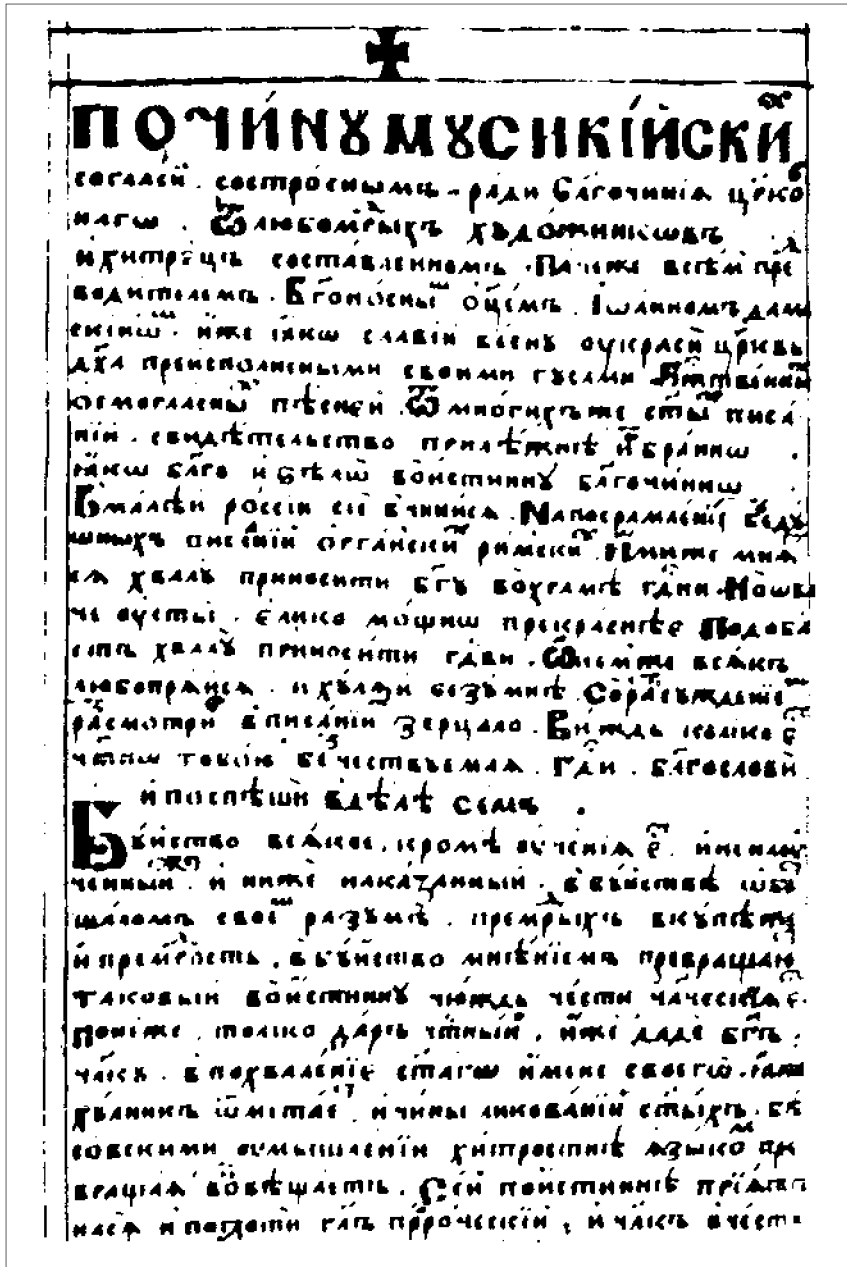 По чи́нꙋ мꙋсикі́йски́х
согласїй . состро́еннымъ . ра́ди бл҃гочинїѧ цр҃ко́в
нагѡ . Ѿ любомр҃ыхъ хꙋдо́жникѡвъ
и хитрецъ соста́вленномъ . Паче же всѣм пред
водителемъ . Бг҃оно́сным ѻц҃е́мъ . Іѡанномъ дам
скиⷨ . и́же ꙗ́кѡ славїй весень оукраси́ цр҃ковь
дх҃а преиспо́лненными своими гꙋсл҃ми
осмогласны пѣсней . Ѿ мно́гихъ же ст҃ы писа́
нїй . свидѣ́тельство прилѣ́жнѣ и́збраннѡ .
ꙗ́кѡ бл҃го и ѕѣлѡ̀ вои́стиннꙋ бл҃гочи́ннѡ
В малѣй ро́ссїи сїѐ вчини́сѧ . На посрамле́нїе бездꙋ́
шныхъ писка́нїй ѻрга́нски ри́мски . И́миже мнѧ
сѧ хвалꙋ̀ приноси́ти бг҃ꙋ во хра́мѣ гд҃ни . Но ѡба
че оусты̀ . є҆ли́ко мо́щнѡ прекра́снѣе Подоба́
етъ хвалꙋ̀ приноси́ти гд҃ви . Ѡ не́мже всѧ́къ
любопрѧ́йсѧ . и хꙋлѧ́й безꙋ́мнѣ . Со разсꙋжде́нїем
разсмотри́ в писа́нїи зерцало . Ви́ждь колико
че́стнѡ тобо́ю безче́ствꙋемаѧ . Гд҃и . бл҃гословѝ
и поспѣшѝ в дѣ́лѣ семъ .
Бꙋ́йство всѧ́кое . кромѣ̀ оуче́нїѧ є҆ . и не наꙋ́
че́нный . и нижѐ нака́занный . в бꙋ́йствѣ ѡбꙋ
ша́ломъ свои разꙋ́мѣ . премр҃ыхъ вкꙋ́пѣ
и премр҃ость . в бꙋ́йство мнѣ́нїемъ превраща́ю
таковы́й вои́стиннꙋ чю́ждь че́сти чл҃ческїѧ є҆
Поне́же . толи́ко да́ръ че́тный . и́же дадѐ бг҃ъ .
чл҃кꙋ . в похвале́нїе ст҃а́гѡ и́мене своегѡ̀ .
хꙋ́лникъ ѿмета́е . и чи́ны ликова́нїй ст҃ы́хъ . бѣ
совскими оумышле́нїи хитростнѣ ѧзы́ко пре
враща́ѧ возвѣща́етъ . Се́й пои́стиннѣ прїѧ́т
насѧ и пого́ди гл҃ъ прⷪ҇ро́ческїй , и чл҃къ в че́сти